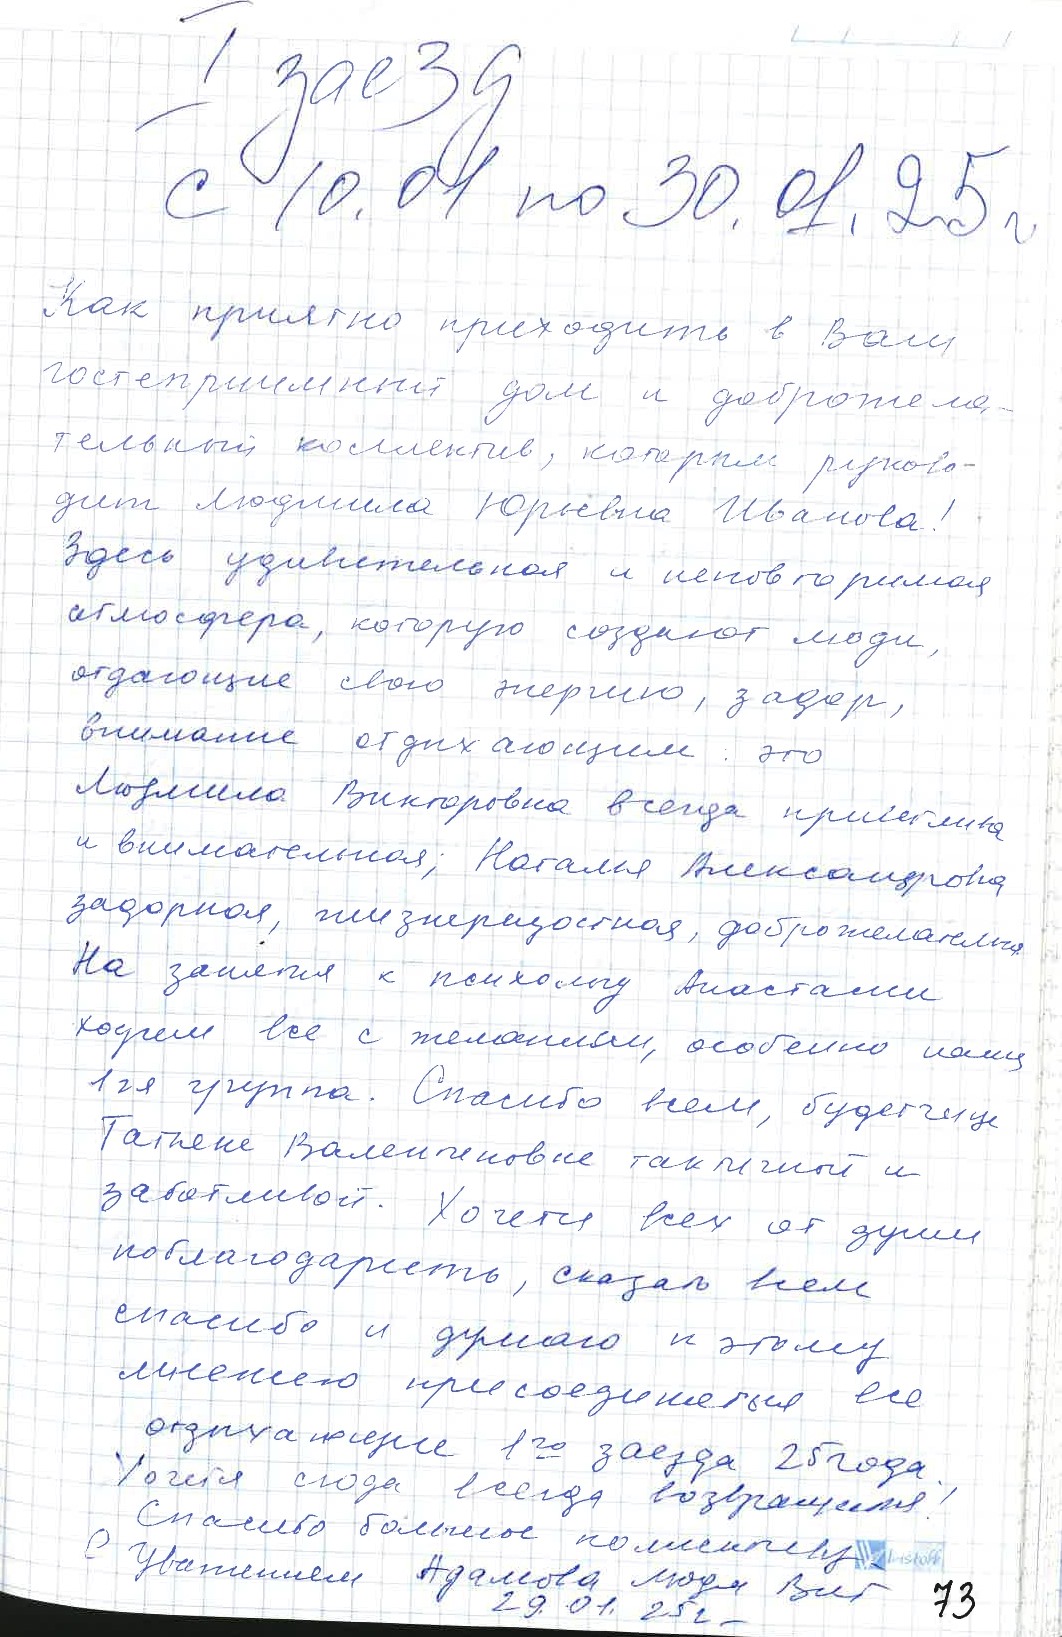 I заезд
с 10.01 по 30.01.25г
Как приятно приходить в Ваш
гостеприимный дом и доброжела-
тельный коллектив, которым руково-
дит Людмила Юрьевна Иванова!
Здесь удивительная и неповторимая
атмосфера, которую создают люди,
отдающие свою энергию, задор,
внимание отдыхающим: это
Людмила Викторовна всегда приветлива
и внимательная; Наталья Александровна
задорная, жизнерадостная, доброжелательная.
На занятия к психологу Анастасии
ходим все с желанием, особенно наша
1ая группа. Спасибо всем,
Татьяне Валентиновне тактичной и
заботливой. Хочется всех от души
поблагодарить, сказать всем
спасибо и думаю к этому
мнению присоединятся все
отдыхающие 1го заезда 25года.
Хочется сюда всегда возвращаться!
Спасибо большое коллективу
С Уважением Адамова Люд
29.01.25г
73